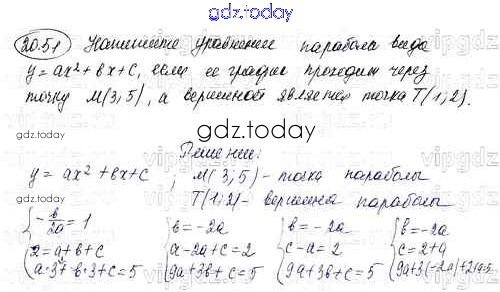 gdz.today
20.51 Напишите уравнение параболы вида
y=ax²+bx+c, если ее график проходит через
точку M(3,5), а вершиной является точка T(1;2).
gdz.today
Решение:
y = ax² + bx + c ; M(3;5) - точка параболы
T(1;2) - вершина параболы
{ -b/2a = 1 { b = -2a { b = -2a { b = -2a
2 = a+b+c a - 2a + c = 2 c - a = 2 c = 2+a
a·3²+b·3+c=5 9a+3b+c=5 9a+3b+c=5 9a+3(-2a)+2+a=5
gdz.today